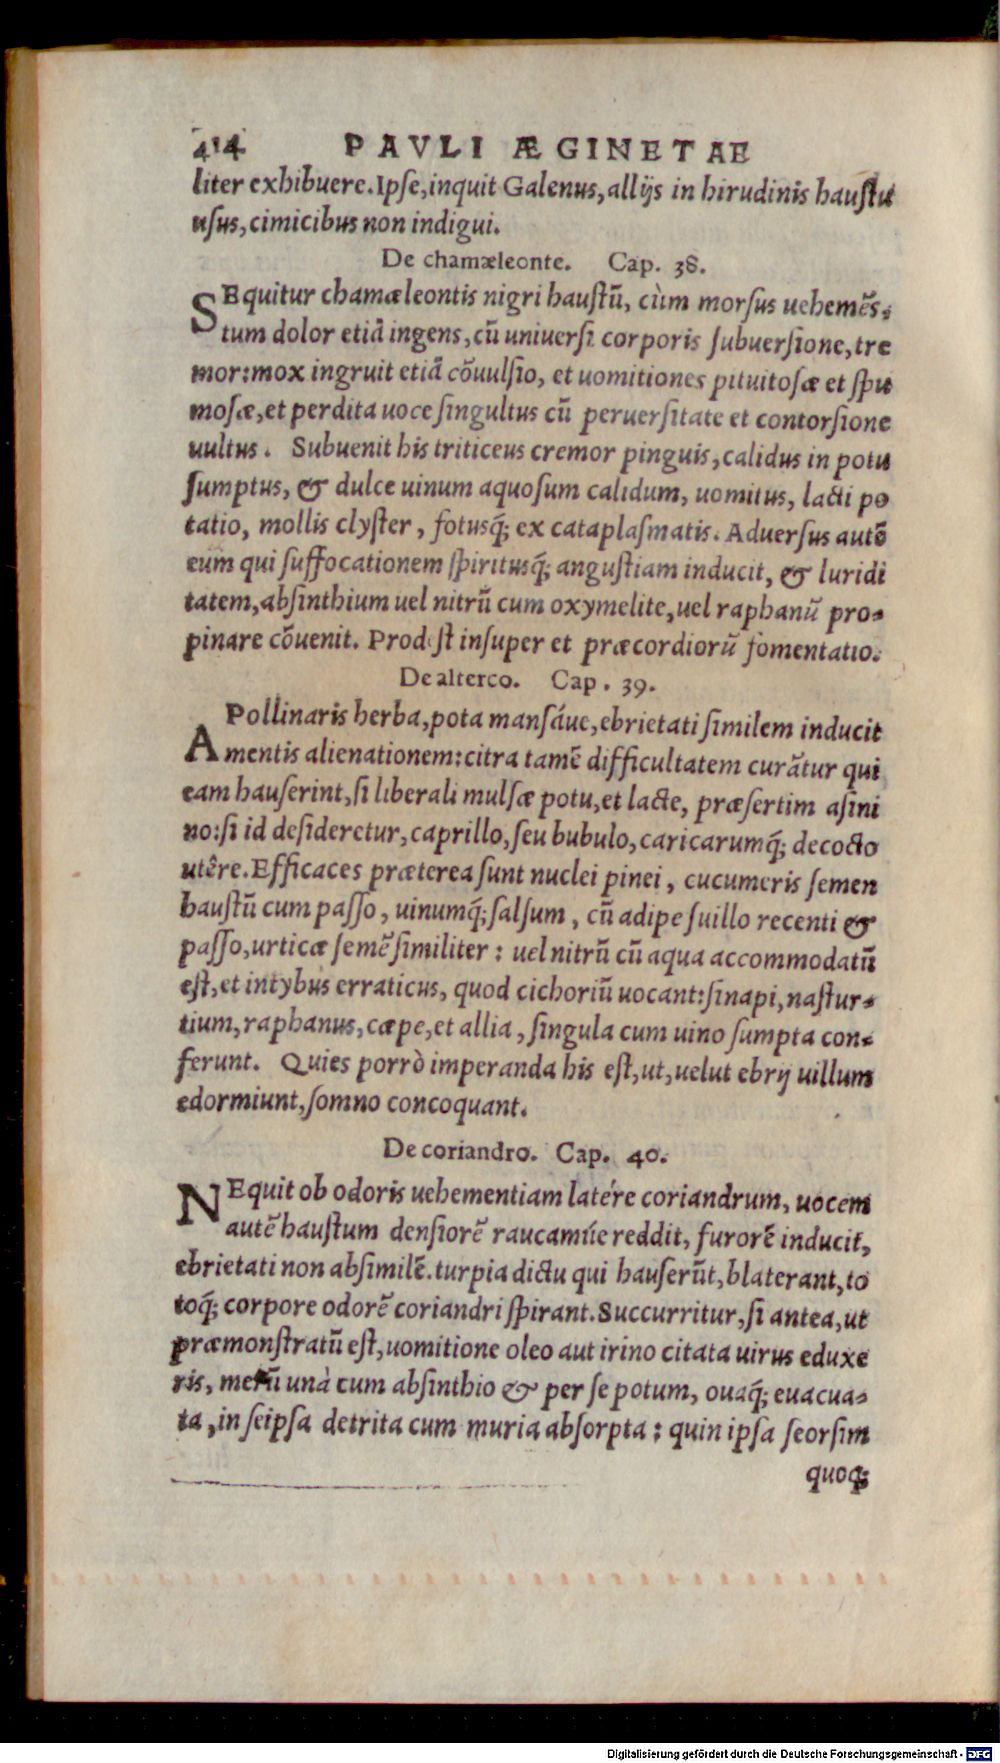 414 PAVLI ÆGINETAE
liter exhibuere. Ipſe, inquit Galenus, allijs in hirudinis hauſtu
uſus, cimicibus non indigui.
De chamæleonte. Cap. 38.
SEquitur chamæleontis nigri hauſtũ, cùm morſus uehemẽs-
tum dolor etiã ingens, cũ uniuerſi corporis ſubuerſione, tre
mor: mox ingruit etiã cõuulſio, et uomitiones pituitoſæ et ſpu
moſæ, et perdita uoce ſingultus cũ peruerſitate et contorſione
uultus. Subuenit his triticeus cremor pinguis, calidus in potu
ſumptus, & dulce uinum aquoſum calidum, uomitus, lacti po
tatio, mollis clyſter, fotusq́; ex cataplaſmatis. Aduerſus autẽ
eum qui ſuffocationem ſpiritusq́; anguſtiam inducit, & luridi
tatem, abſinthium uel nitrũ cum oxymelite, uel raphanũ pro-
pinare cõuenit. Prodeſt inſuper et præcordiorũ fomentatio.
De alterco. Cap. 39.
APollinaris herba, pota manſáue, ebrietati ſimilem inducit
mentis alienationem: citra tamẽ difficultatem curãtur qui
eam hauſerint, ſi liberali mulſæ potu, et lacte, præſertim aſini
no: ſi id deſideretur, caprillo, ſeu bubulo, caricarumq́; decocto
utêre. Efficaces præterea ſunt nuclei pinei, cucumeris ſemen
hauſtũ cum paſſo, uinumq́; ſalſum, cũ adipe ſuillo recenti &
paſſo, urticæ ſemẽ ſimiliter: uel nitrũ cũ aqua accommodatũ
eſt, et intybus erraticus, quod cichoriũ uocant: ſinapi, naſtur-
tium, raphanus, cæpe, et allia, ſingula cum uino ſumpta con-
ferunt. Quies porrò imperanda his eſt, ut, uelut ebrij uillum
edormiunt, ſomno concoquant.
De coriandro. Cap. 40.
NEquit ob odoris uehementiam latére coriandrum, uocem
autẽ hauſtum denſiorẽ raucamúe reddit, furorẽ inducit,
ebrietati non abſimilẽ. turpia dictu qui hauſerũt, blaterant, to
toq́; corpore odorẽ coriandri ſpirant. Succurritur, ſi antea, ut
præmonſtratũ eſt, uomitione oleo aut irino citata uirus eduxe
ris, merũ unà cum abſinthio & per ſe potum, ouaq́; euacua-
ta, in ſeipſa detrita cum muria abſorpta: quin ipſa ſeorſim
quoq́;
Digitalisierung gefördert durch die Deutsche Forschungsgemeinschaft - DFG